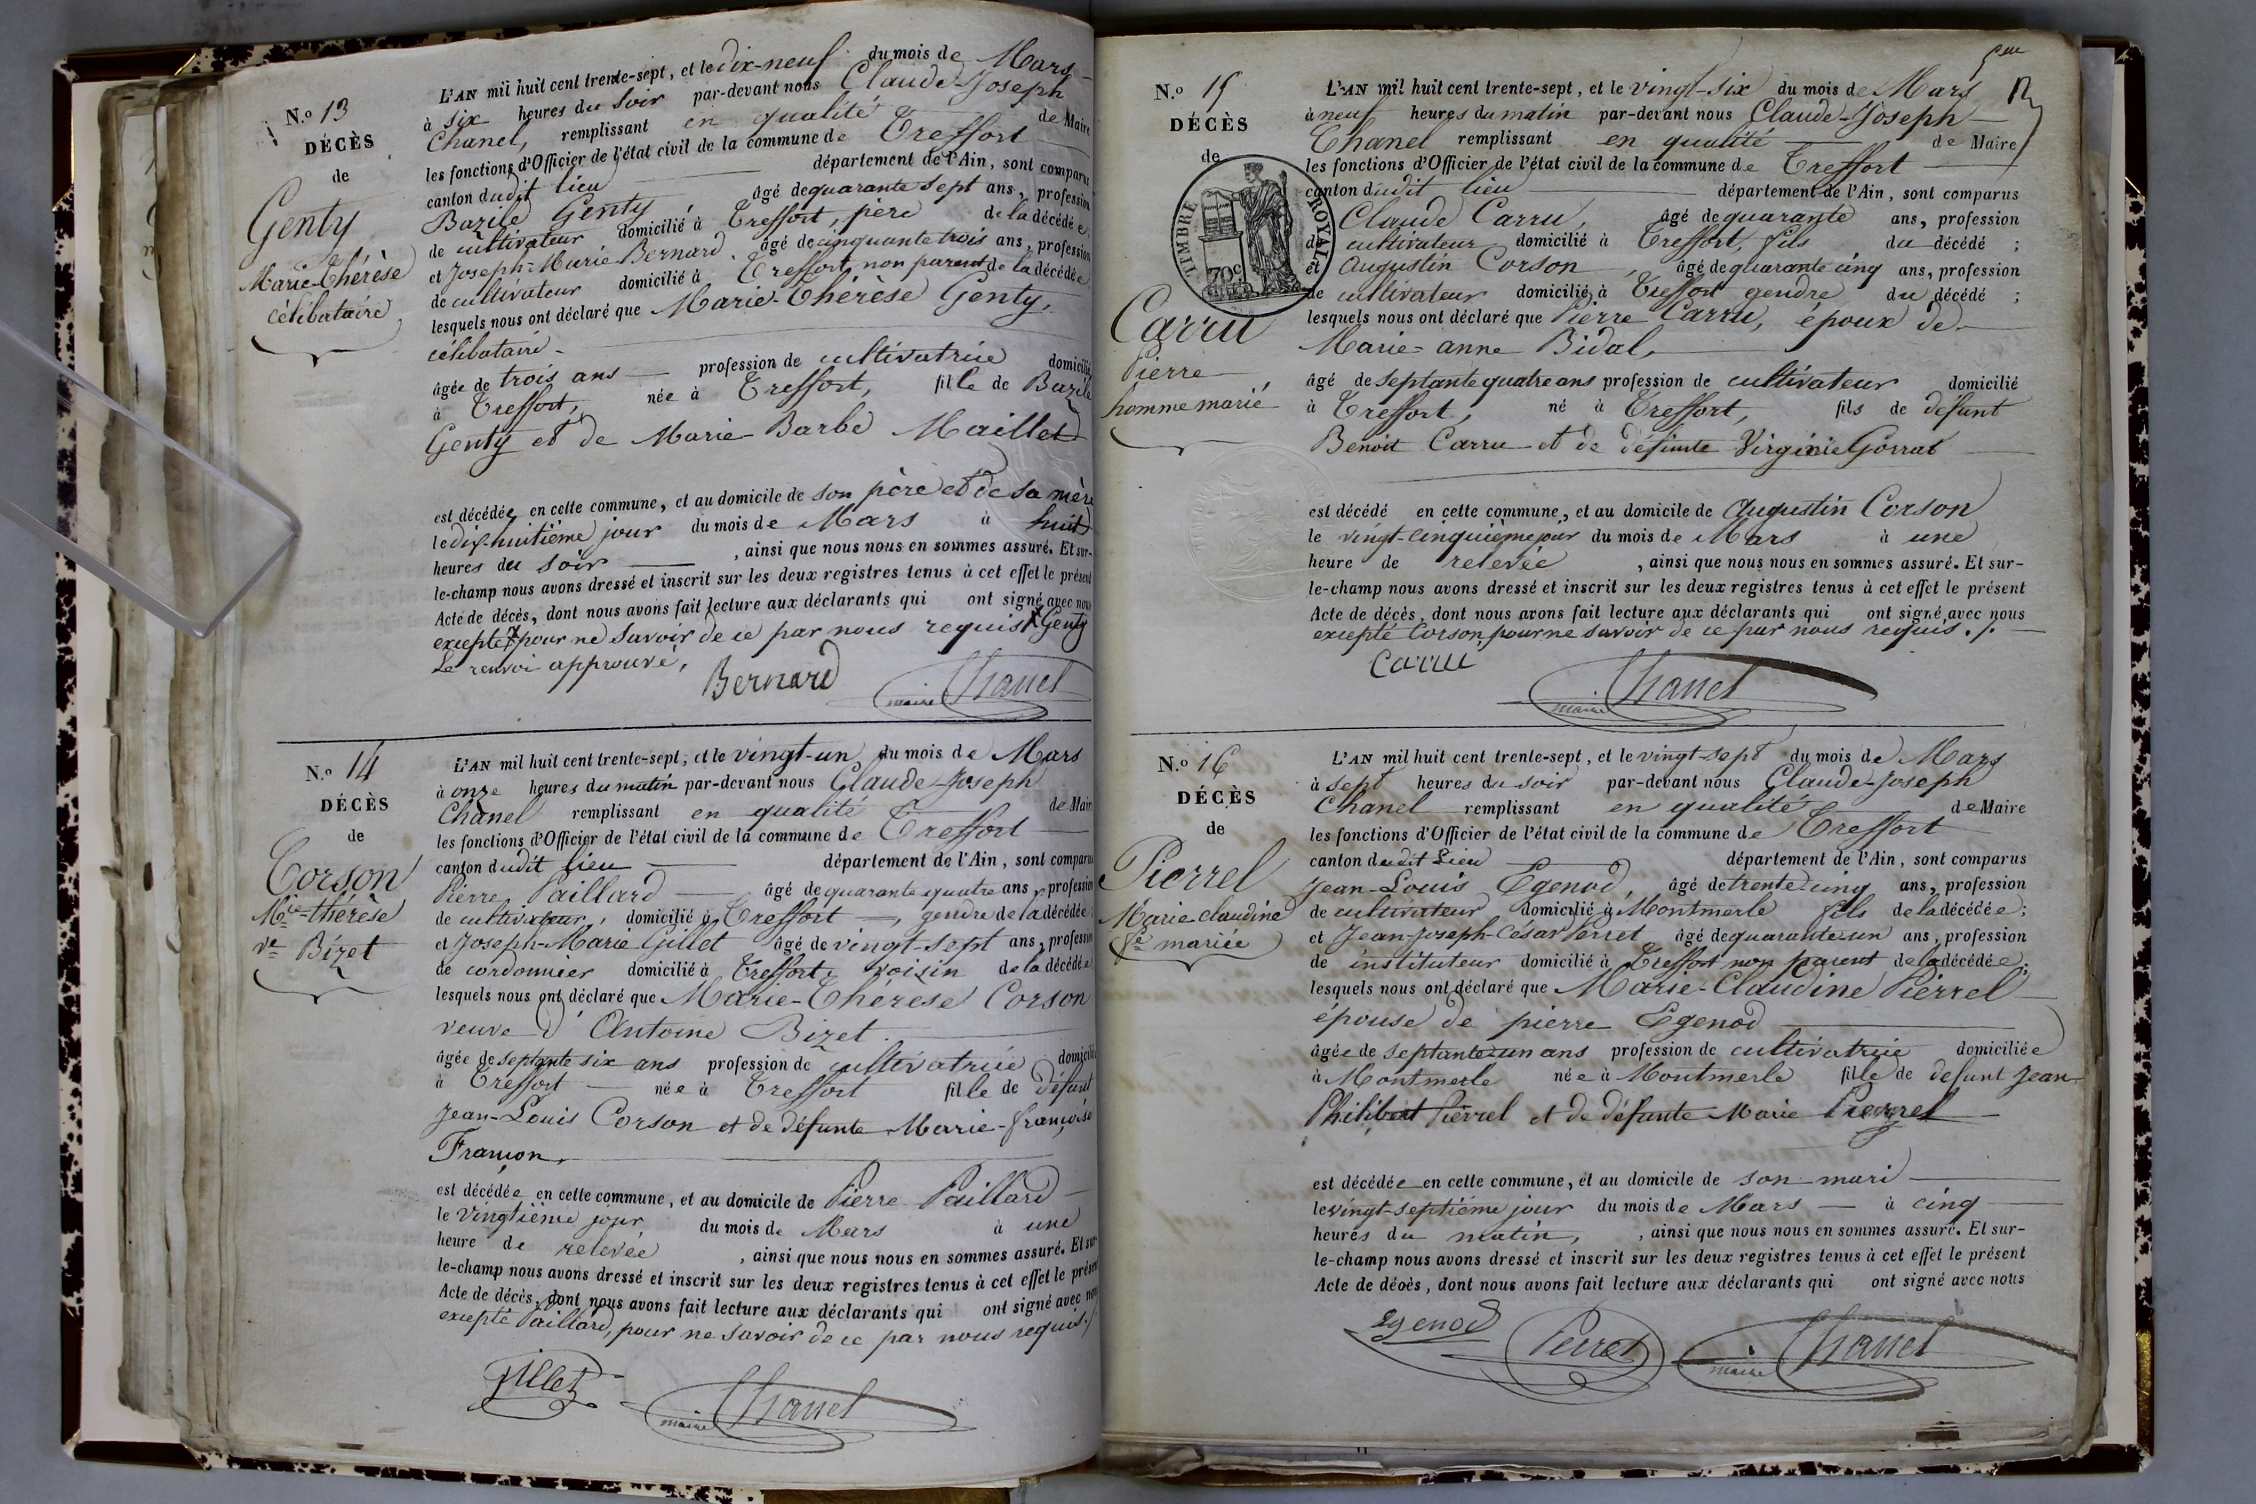 N.o 13
DÉCÈS
de
Genty
Marie-thérèse
célibataire
L'AN mil huit cent trente-sept, et le dix-neuf du mois de Mars
à six heures du soir par-devant nous Claude-Joseph
Chanel, remplissant en qualité de Maire
les fonctions d'Officier de l'état civil de la commune de Treffort
canton dudit lieu département de l'Ain, sont comparus
Bazile Genty âgé de quarante sept ans, profession
de cultivateur domicilié à Treffort, père de la décédée;
et Joseph-Marie Bernard âgé de cinquante trois ans, profession
de cultivateur domicilié à Treffort non parent de la décédée
lesquels nous ont déclaré que Marie-Thérèse Genty,
célibataire
âgée de trois ans profession de cultivatrice domiciliée
à Treffort, née à Treffort, fille de Bazile
Genty et de Marie Barbe Maillet
est décédée en cette commune, et au domicile de son père et de sa mère
le dix-huitième jour du mois de Mars à huit
heures du soir, ainsi que nous nous en sommes assuré. Et sur-
le-champ nous avons dressé et inscrit sur les deux registres tenus à cet effet le présent
Acte de décès, dont nous avons fait lecture aux déclarants qui ont signé avec nous
excepté pour ne savoir de ce par nous requis Genty
Le renvoi approuvé,
Bernard Chanel
maire
N.o 14
DÉCÈS
de
Corson
Mie-thérèse
ve Bizet
L'AN mil huit cent trente-sept, et le vingt-un du mois de Mars
à onze heures du matin par-devant nous Claude-Joseph
Chanel remplissant en qualité de Maire
les fonctions d'Officier de l'état civil de la commune de Treffort
canton dudit lieu département de l'Ain, sont comparus
Pierre Paillard âgé de quarante quatre ans, profession
de cultivateur, domicilié à Treffort, gendre de la décédée;
et Joseph-Marie Gillet âgé de vingt-sept ans, profession
de cordonnier domicilié à Treffort, voisin de la décédée
lesquels nous ont déclaré que Marie-Thérèse Corson
veuve d'Antoine Bizet
âgée de septante six ans profession de cultivatrice domiciliée
à Treffort née à Treffort fille de défunt
Jean-Louis Corson et de défunte Marie-françoise
Framon.
est décédée en cette commune, et au domicile de Pierre Paillard
le vingtième jour du mois de Mars à une
heure de relevée, ainsi que nous nous en sommes assuré. Et sur-
le-champ nous avons dressé et inscrit sur les deux registres tenus à cet effet le présent
Acte de décès, dont nous avons fait lecture aux déclarants qui ont signé avec nous
excepté Paillard, pour ne savoir de ce par nous requis./.
Gillet
Chanel
maire
N.o 15
DÉCÈS
de
TIMBRE ROYAL
70c
Carru
Pierre
homme marié
L'AN mil huit cent trente-sept, et le vingt-six du mois de Mars
à neuf heures du matin par-devant nous Claude-Joseph
Chanel remplissant en qualité de Maire
les fonctions d'Officier de l'état civil de la commune de Treffort
canton dudit lieu département de l'Ain, sont comparus
Claude Carru, âgé de quarante ans, profession
de cultivateur domicilié à Treffort, fils du décédé;
et Augustin Corson, âgé de quarante cinq ans, profession
de cultivateur domicilié à Treffort gendre du décédé;
lesquels nous ont déclaré que Pierre Carru, époux de
Marie-anne Bidal,
âgé de septante quatre ans profession de cultivateur domicilié
à Treffort, né à Treffort, fils de défunt
Benoit Carru et de défunte Virginie Gorrat
est décédé en cette commune, et au domicile de Augustin Corson
le vingt-cinquième jour du mois de Mars à une
heure de relevée, ainsi que nous nous en sommes assuré. Et sur-
le-champ nous avons dressé et inscrit sur les deux registres tenus à cet effet le présent
Acte de décès, dont nous avons fait lecture aux déclarants qui ont signé avec nous
excepté Corson, pour ne savoir de ce par nous requis./.
Carru
Chanel
maire
N.o 16
DÉCÈS
de
Pierrel
Marie claudine
fe mariée
L'AN mil huit cent trente-sept, et le vingt-sept du mois de Mars
à sept heures du soir par-devant nous Claude-Joseph
Chanel remplissant en qualité de Maire
les fonctions d'Officier de l'état civil de la commune de Treffort
canton dudit Lieu département de l'Ain, sont comparus
Jean-Louis Egenod, âgé de trente-cinq ans, profession
de cultivateur domicilié à Montmerle fils de la décédée;
et Jean-Joseph-César Perret âgé de quarante-un ans, profession
de instituteur domicilié à Treffort non parent de la décédée;
lesquels nous ont déclaré que Marie-Claudine Pierrel
épouse de pierre Egenod
âgée de septante-un ans profession de cultivatrice domiciliée
à Montmerle née à Montmerle fille de defunt Jean
Philibert Pierrel et de défunte Marie Pierrel
est décédée en cette commune, et au domicile de son mari
le vingt-septième jour du mois de Mars à cinq
heures du matin, , ainsi que nous nous en sommes assuré. Et sur-
le-champ nous avons dressé et inscrit sur les deux registres tenus à cet effet le présent
Acte de décès, dont nous avons fait lecture aux déclarants qui ont signé avec nous
Egenod Perret Chanel
maire